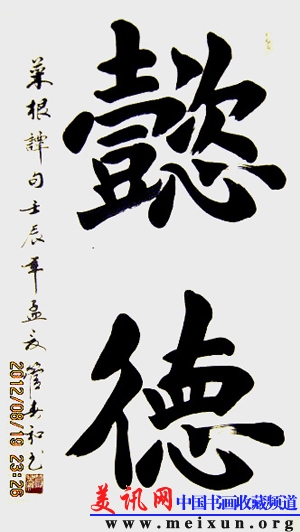 懿德
菜根譚句壬辰年孟夏
2012/08/19 23:26
美讯网 中国书画收藏频道
www.meixun.org